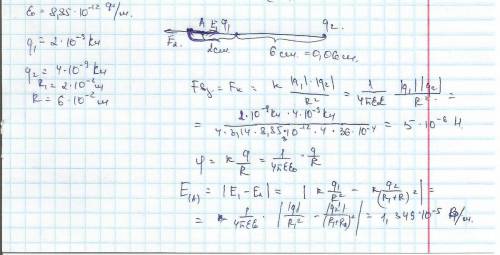 ε₀ = 8,85·10⁻¹² Ф/м.
q₁ = 2·10⁻⁹ Кл
q₂ = 4·10⁻⁹ Кл
R₁ = 2·10⁻² м
R = 6·10⁻² м
A E₁ q₁ q₂
F₂
2см 6 см = 0,06 м.
= Fк = к |q₁|·|q₂| / R² = 1/4πεε₀ |q₁||q₂| / R² =
= 2·10⁻⁹ Кл · 4·10⁻⁹ Кл / 4·3,14·8,85·10⁻¹²·4·36·10⁻⁴ = 5·10⁻⁶ Н.
φ = к q/R = 1/4πεε₀ · q/R
E(A) = |E₁ - E₂| = | к q₁/R₁² - к q₂/(R₁+R)² | =
= 1/4πεε₀ · | |q₁|/R₁² - |q₂|/(R₁+R₂)² | = 1,349·10⁻⁵ В/м.